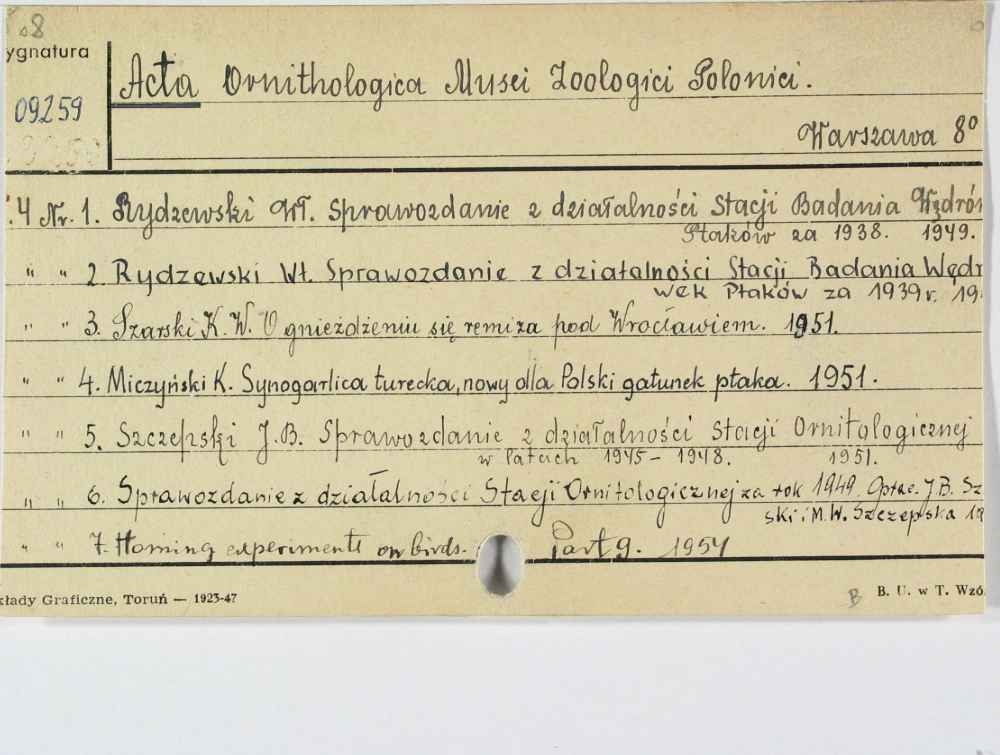 8
ygnatura
09259
Acta Ornithologica Musei Zoologici Polonici.
Warszawa 8º
.4 Nr. 1. Rydzewski Wł. Sprawozdanie z działalności Stacji Badania Wędró
Ptaków za 1938. 1949.
" " 2. Rydzewski Wł. Sprawozdanie z działalności Stacji Badania Wędr
wek Ptaków za 1939 r. 19
" " 3. Szarski K. W. O gnieżdżeniu się remiza pod Wrocławiem. 1951.
" " 4. Miczyński K. Synogarlica turecka, nowy dla Polski gatunek ptaka. 1951.
" " 5. Szczepski J. B. Sprawozdanie z działalności Stacji Ornitologicznej
w latach 1945 – 1948. 1951.
" " 6. Sprawozdanie z działalności Stacji Ornitologicznej za rok 1949. Oprac. J. B. Sz
ski i M. W. Szczepska 19
" " 7. Homing experiments on birds. Part 9. 1954
kłady Graficzne, Toruń — 1923-47
B B. U. w T. Wzó